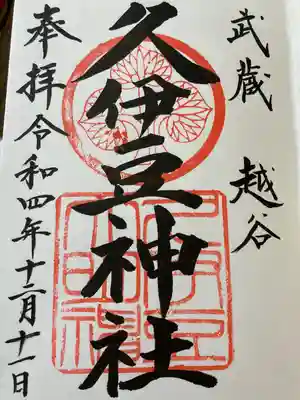 武蔵 越谷
久伊豆神社
奉拝令和四年十二月十一日